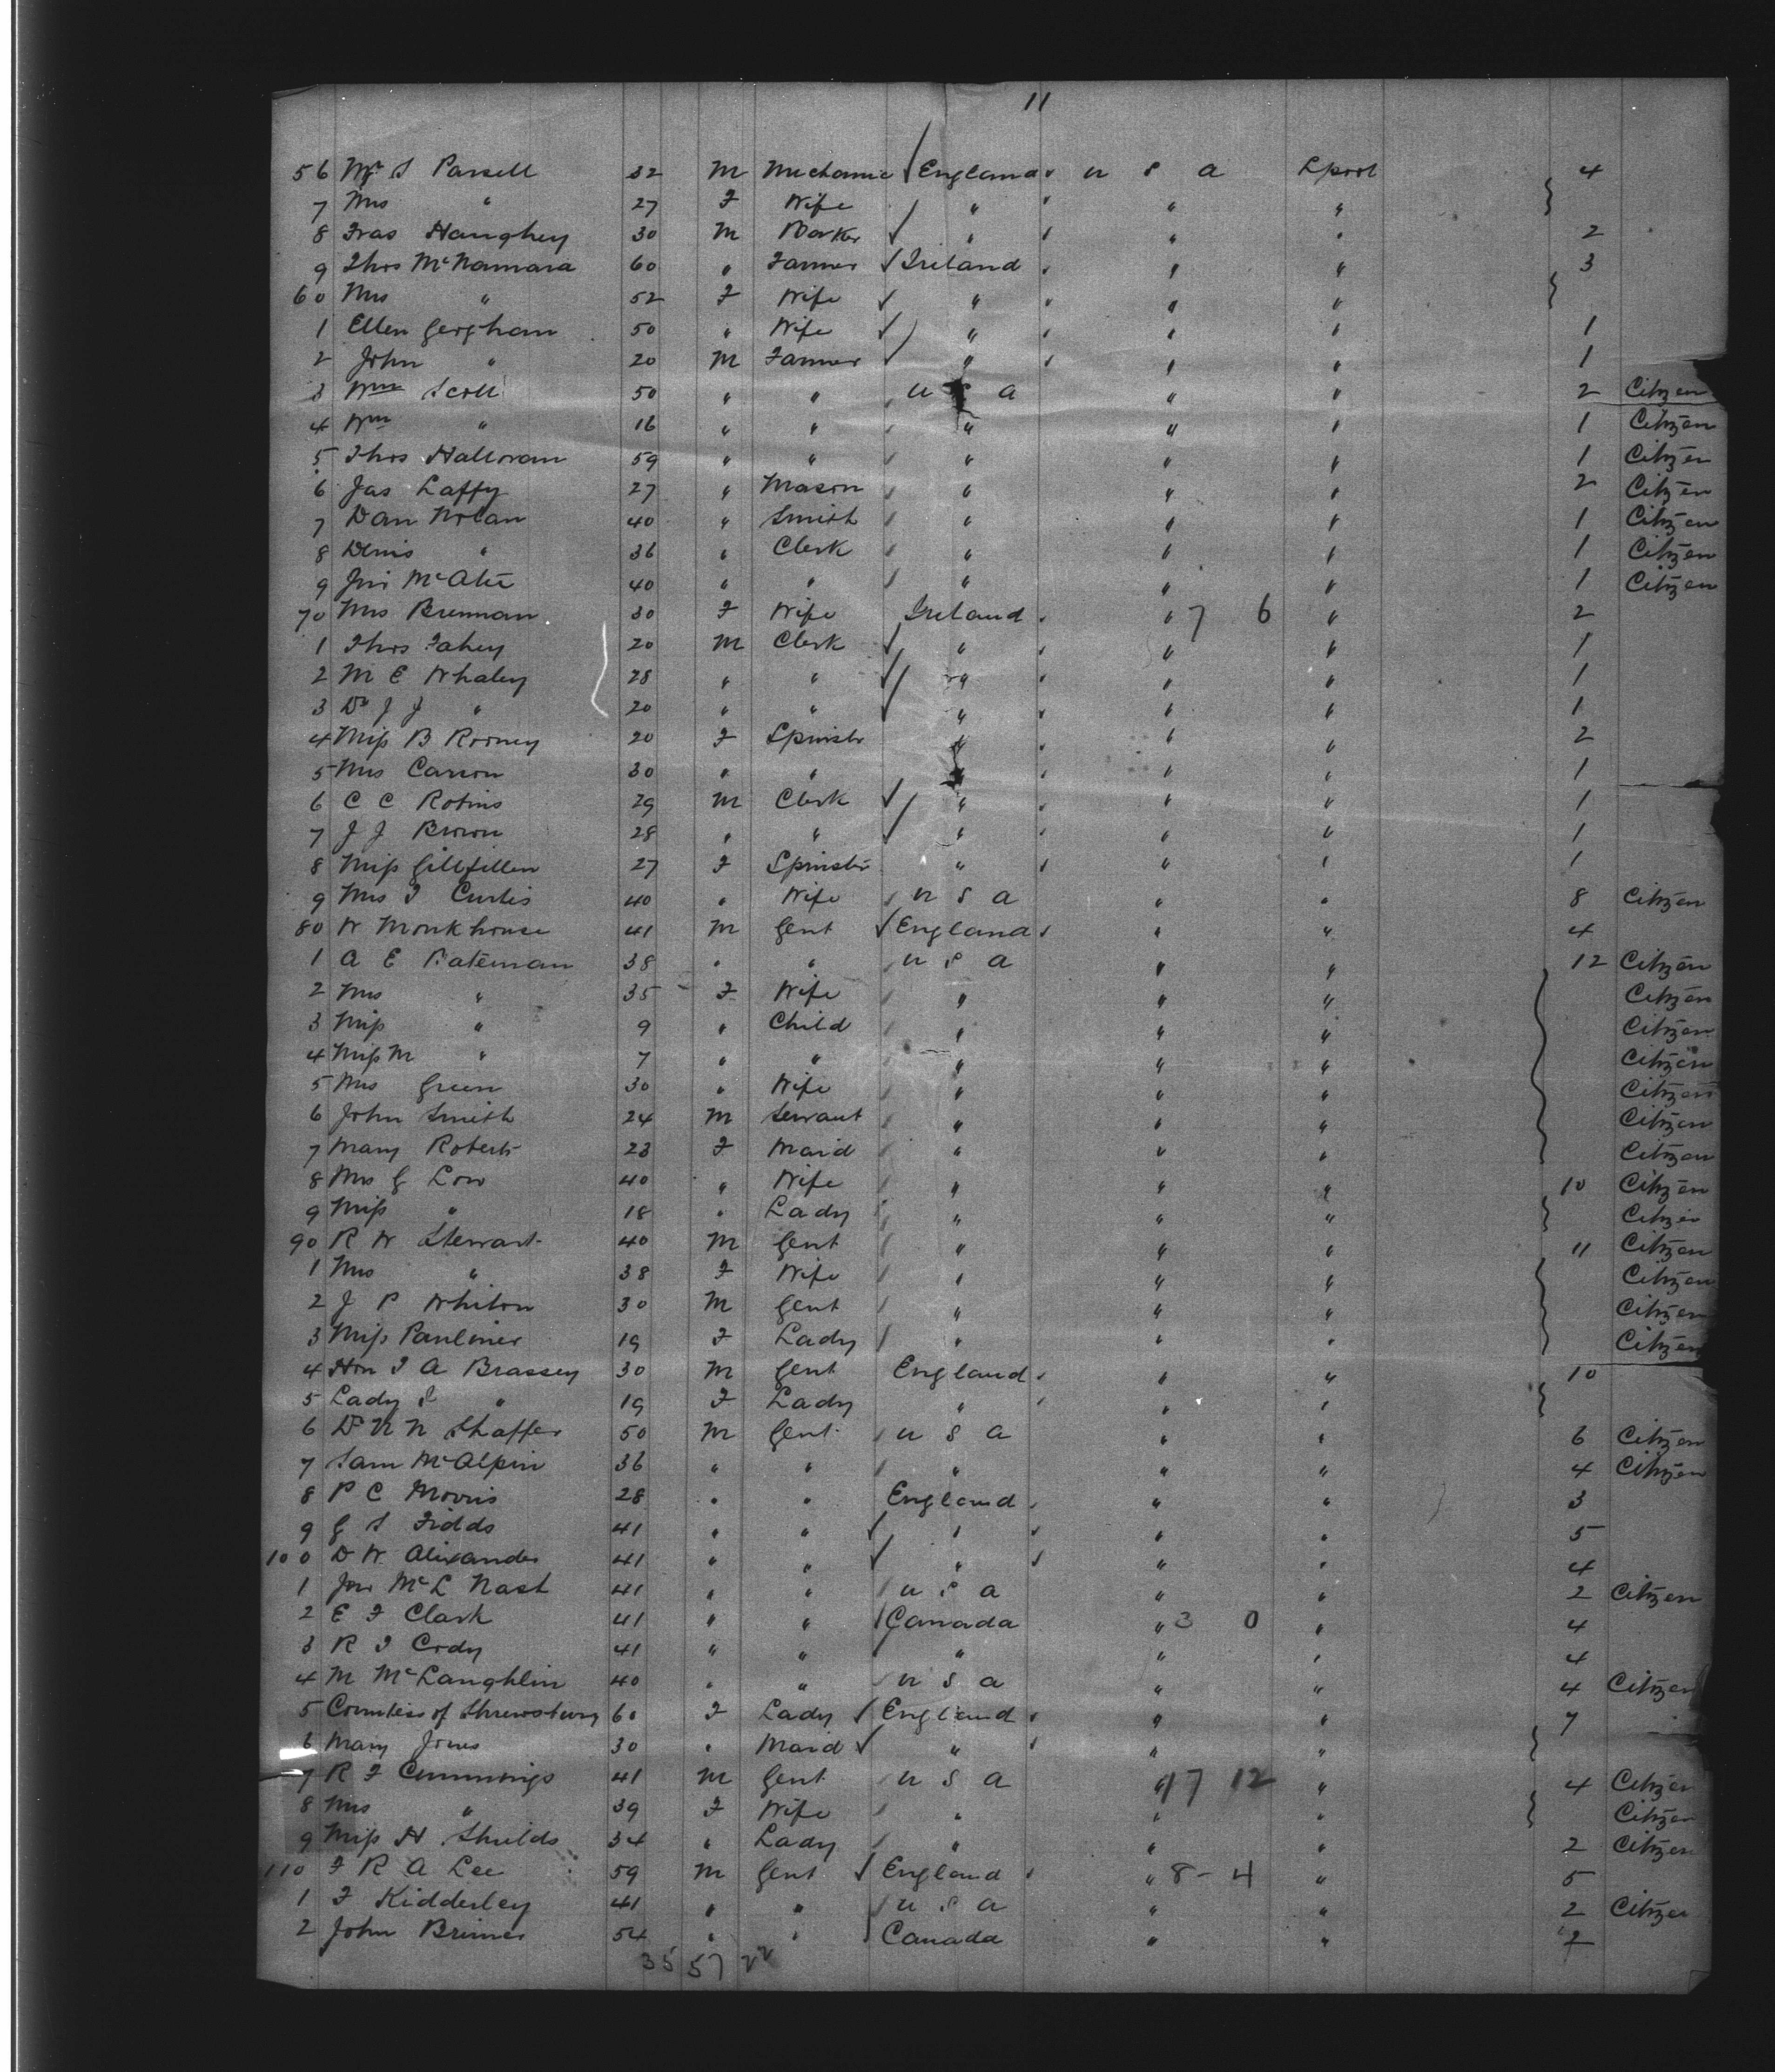 11
56 Mr S Parsell 32 M Mechanic England U S A Lpool 4
7 Mrs " 27 F Wife " " "
8 Fras Haughey 30 M " " " 2
9 Thos McNamara 60 " Farmer Ireland " " 3
60 Mrs " 52 F Wife " " "
1 Ellen Gerghan 50 " Wife " " " 1
2 John " 20 M Farmer " " " 1
3 Wm Scott 50 " " U S A " " 2 Citizen
4 Wm " 16 " " " " " 1 Citizen
5 Thos Halloran 59 " " " " " 1 Citizen
6 Jas Laffy 27 " Mason " " " 2 Citizen
7 Dan Nolan 40 " Smith " " " 1 Citizen
8 Denis " 36 " Clerk " " " 1 Citizen
9 Jno McAtee 40 " " " " " 1 Citizen
70 Mrs Brennan 30 F Wife Ireland " 7 6 " 2
1 Thos Fahey 20 M Clerk " " " 1
2 M E Whaley 28 " " " " " 1
3 Dr J J " 20 " " " " " 1
4 Miss B Rooney 20 F Spinstr " " " 2
5 Mrs Carson 30 " " " " " 1
6 C C Robins 29 M Clerk " " " 1
7 J J Brown 28 " " " " " 1
8 Miss Gillfillen 27 F Spinstr " " " 1
9 Mrs F Curtis 40 " Wife U S A " " 8 Citizen
80 W Monkhouse 41 M Gent England " " 4
1 A E Bateman 38 " " U S A " " 12 Citizen
2 Mrs " 35 F Wife " " " Citizen
3 Miss " 9 " Child " " " Citizen
4 Miss M " 7 " " " " " Citizen
5 Mrs Green 30 " Wife " " " Citizen
6 John Smith 24 M Servant " " " Citizen
7 Mary Roberts 23 F Maid " " " Citizen
8 Mrs G Low 40 " Wife " " " 10 Citizen
9 Miss " 18 " Lady " " " Citizen
90 R W Stewart 40 M Gent " " " 11 Citizen
1 Mrs " 38 F Wife " " " Citizen
2 J P Whiton 30 M Gent " " " Citizen
3 Miss Pauliner 19 F Lady " " " Citizen
4 Hon T A Brassey 30 M Gent England " " 10
5 Lady I " 19 F Lady " " "
6 Dr N N Shaffer 50 M Gent U S A " " 6 Citizen
7 Sam McAlpin 36 " " " " " 4 Citizen
8 P C Morris 28 " " England " " 3
9 G S Fidds 41 " " " " " 5
100 D W Alexander 41 " " " " " 4
1 Jno McL Nash 41 " " U S A " " 2 Citizen
2 E F Clark 41 " " Canada " 3 0 " 4
3 R F Cody 41 " " " " " 4
4 M McLaughlin 40 " " U S A " " 4 Citizen
5 Countess of Shrewsbury 60 F Lady England " " 7
6 Mary Jones 30 " Maid " " "
7 R F Cummings 41 M Gent U S A " 17 12 " 4 Citizen
8 Mrs " 39 F Wife " " " Citizen
9 Miss H Shields 34 " Lady " " " 2 Citizen
110 F R A Lee 59 M Gent England " 8-4 " 5
1 F Kidderley 41 " " U S A " " 2 Citizen
2 John Brimer 54 " " Canada " " 2
35 57 22